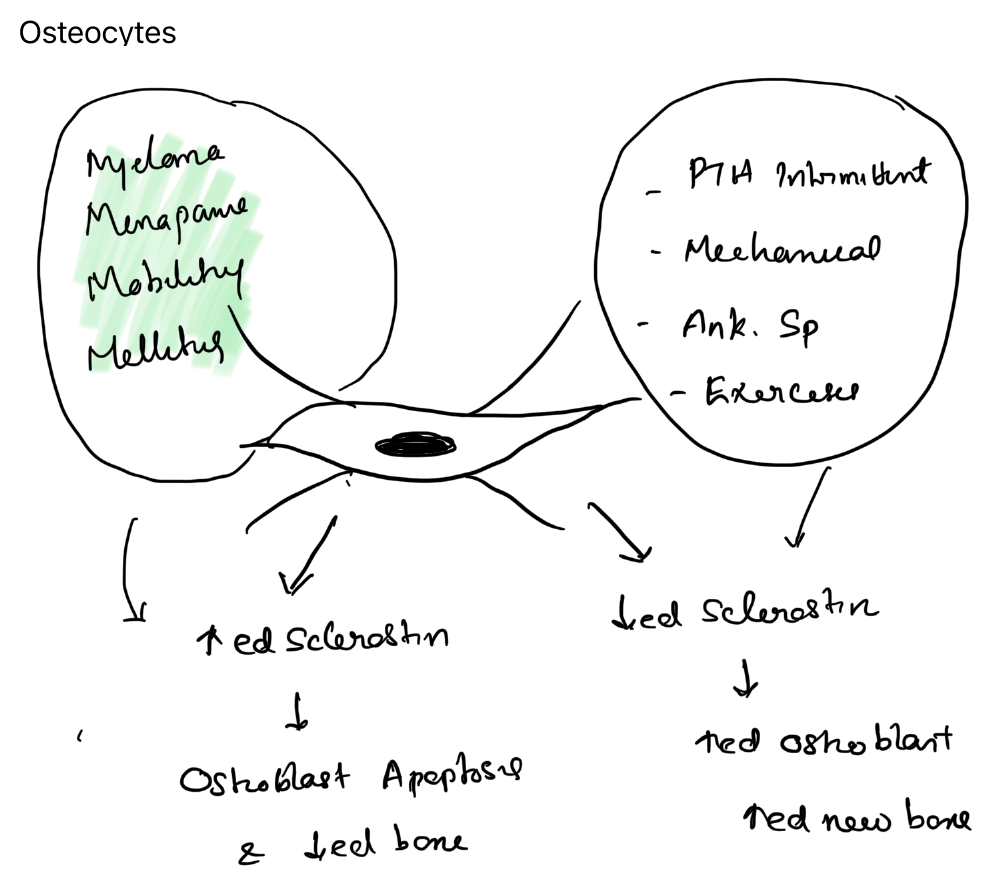 Osteocytes
Myeloma
Menapause
Mobility
Mellitus
- PTH Intermittent
- Mechanical
- Ank. Sp
- Exercises
↑ed Sclerostin
↓
Osteoblast Apoptosis
& ↓ed bone
↓ed Sclerostin
↓
↑ed osteoblast
↑ed new bone